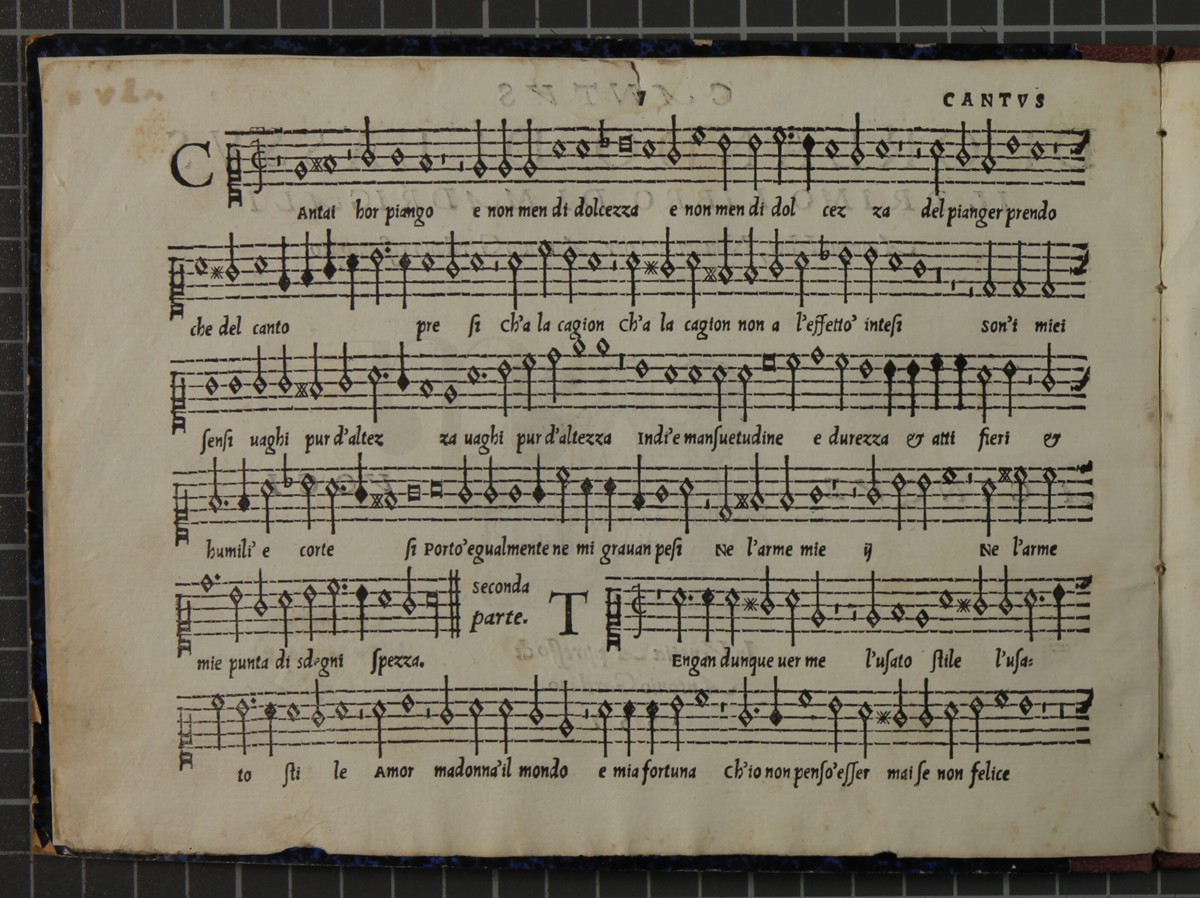 CANTVS
C
Antai hor piango e non men di dolcezza e non men di dol cez za del pianger prendo
che del canto pre ſi Ch'a la cagion Ch'a la cagion non a l'effetto' inteſi son'i miei
ſenſi uaghi pur d'altez za uaghi pur d'altezza Indi'e manſuetudine e durezza & atti fieri &
humili' e corte ſi Porto'egualmente ne mi grauan peſi Ne l'arme mie ij Ne l'arme
mie punta di sdegni ſpezza.
seconda
parte.
T
Engan dunque uer me l'uſato ſtile l'uſa:
to ſti le Amor madonna'il mondo e mia fortuna Ch'io non penſo'eſſer mai ſe non felice